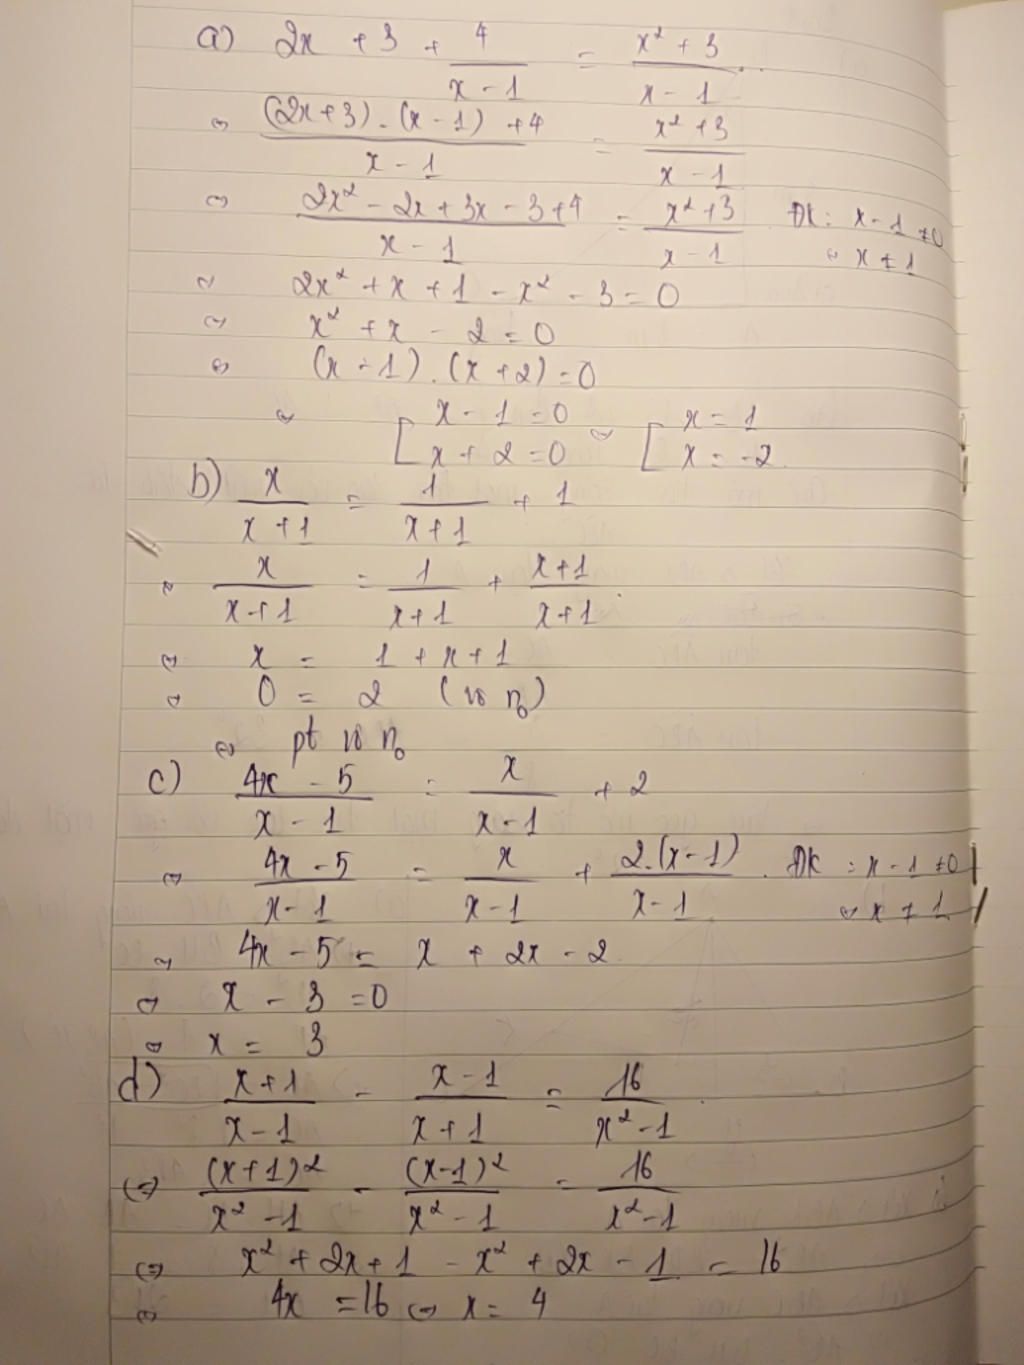 a) 2x + 3 + 4/(x - 1) = (x² + 3)/(x - 1)
⇔ ((2x+3).(x - 1) + 4)/(x - 1) = (x² + 3)/(x - 1)
⇔ (2x² - 2x + 3x - 3 + 4)/(x - 1) = (x² + 3)/(x - 1) ĐK: x - 1 ≠ 0
⇔ x ≠ 1
⇔ 2x² + x + 1 - x² - 3 = 0
⇔ x² + x - 2 = 0
⇔ (x - 1).(x + 2) = 0
⇔ [ x - 1 = 0 ⇔ [ x = 1
x + 2 = 0 x = -2
b) x/(x + 1) = 1/(x + 1) + 1
⇔ x/(x + 1) = 1/(x + 1) + (x + 1)/(x + 1)
⇔ x = 1 + x + 1
⇔ 0 = 2 (vô n₀)
⇔ pt vô n₀
c) (4x - 5)/(x - 1) = x/(x - 1) + 2
⇔ (4x - 5)/(x - 1) = x/(x - 1) + 2.(x - 1)/(x - 1) . ĐK : x - 1 ≠ 0
⇔ x ≠ 1
⇔ 4x - 5 = x + 2x - 2
⇔ x - 3 = 0
⇔ x = 3
d) (x + 1)/(x - 1) - (x - 1)/(x + 1) = 16/(x² - 1)
⇔ (x + 1)²/(x² - 1) - (x - 1)²/(x² - 1) = 16/(x² - 1)
⇔ x² + 2x + 1 - x² + 2x - 1 = 16
⇔ 4x = 16 ⇔ x = 4